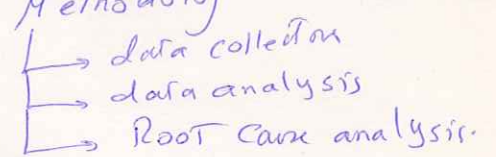 Methodology
data collection
data analysis
Root Cause analysis.